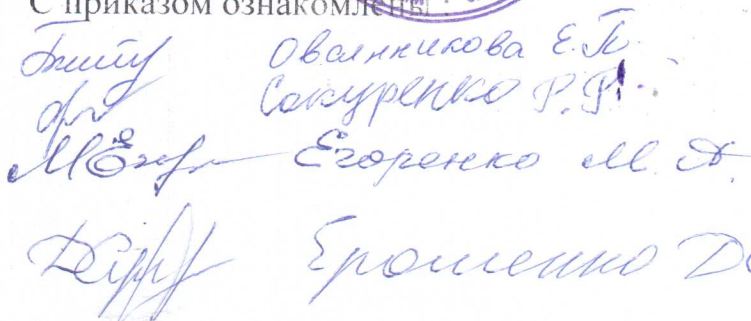 С приказом ознакомлены:
Овсянникова Е.П.
Сокуренко Р.Р.
Егоренко М.А.
Ерошенко Д